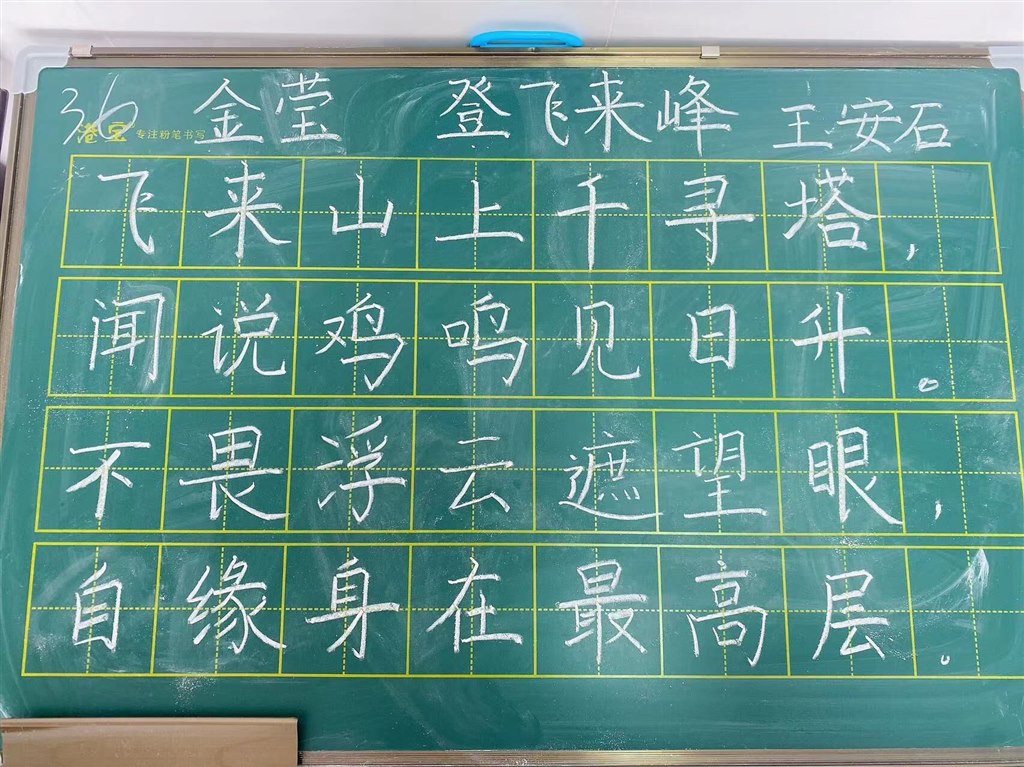 36 金莹 登飞来峰 王安石
港宝 专注粉笔书写
飞来山上千寻塔，
闻说鸡鸣见日升。
不畏浮云遮望眼，
自缘身在最高层。